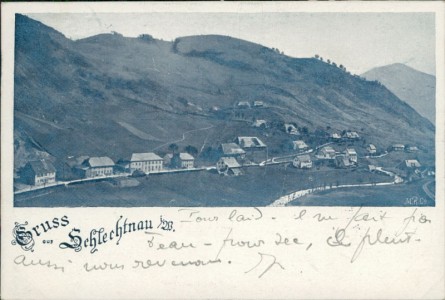 Gruss aus Schlechtnau i/W.
Tour laid. - Il ne fait pas
beau - pour sec, il pleut -
aussi nous revenons.